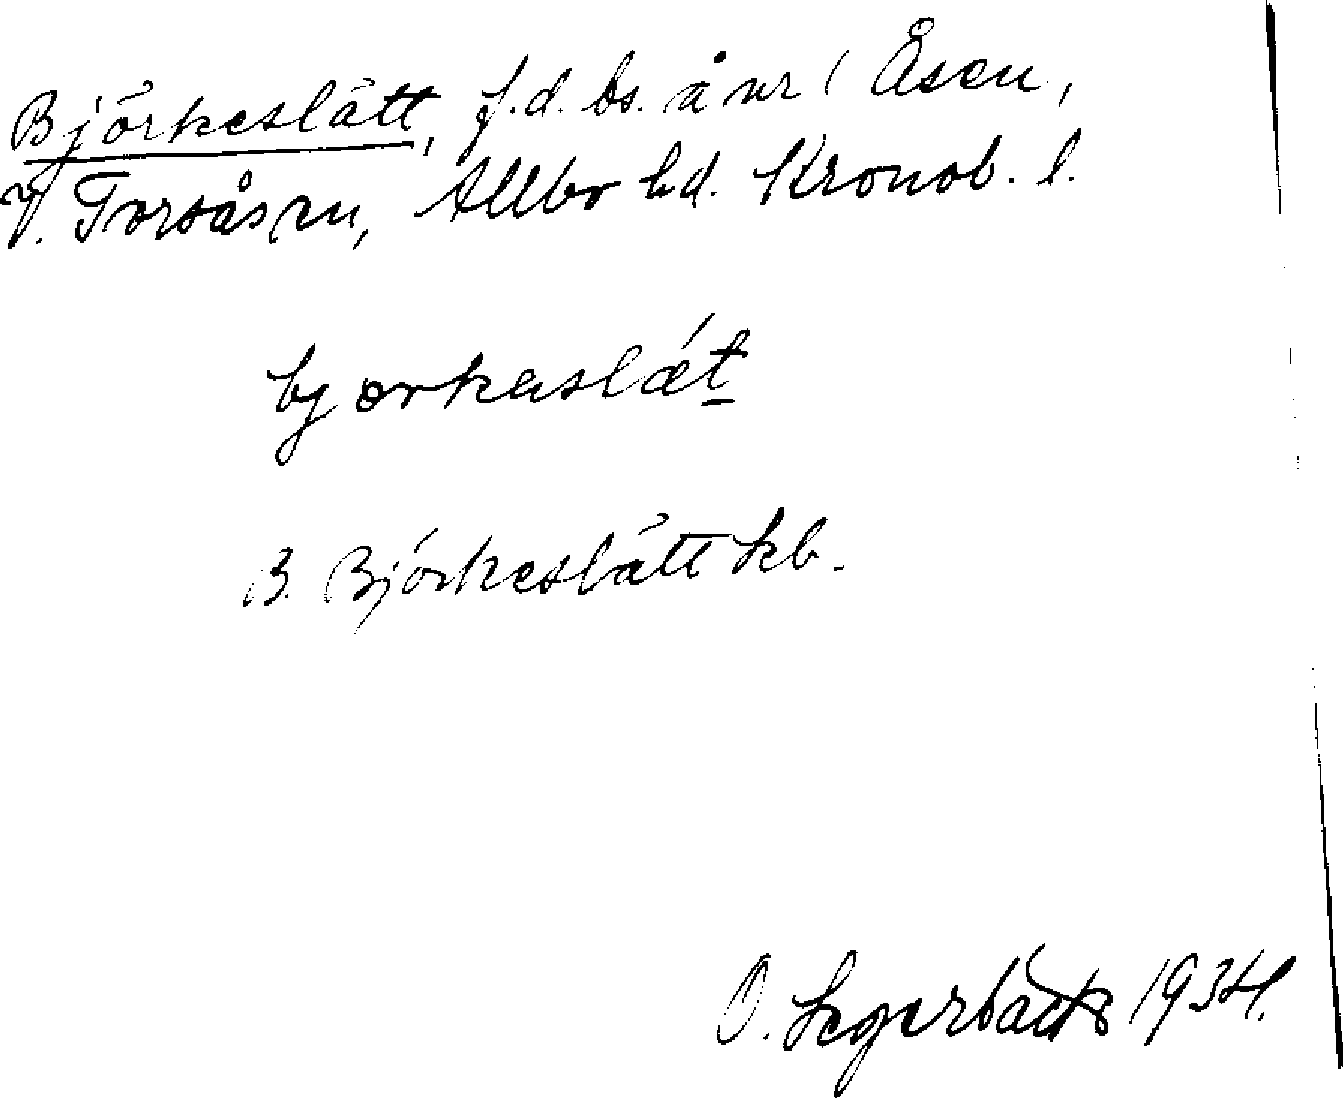 Björkeslätt, f.d. bs. å nr 1 Åsen,
V. Torsås sn, Allbo hd. Kronob. l.
bjorkaslæt
B. Björkeslätt kb.
O. Segerbäck 1934.